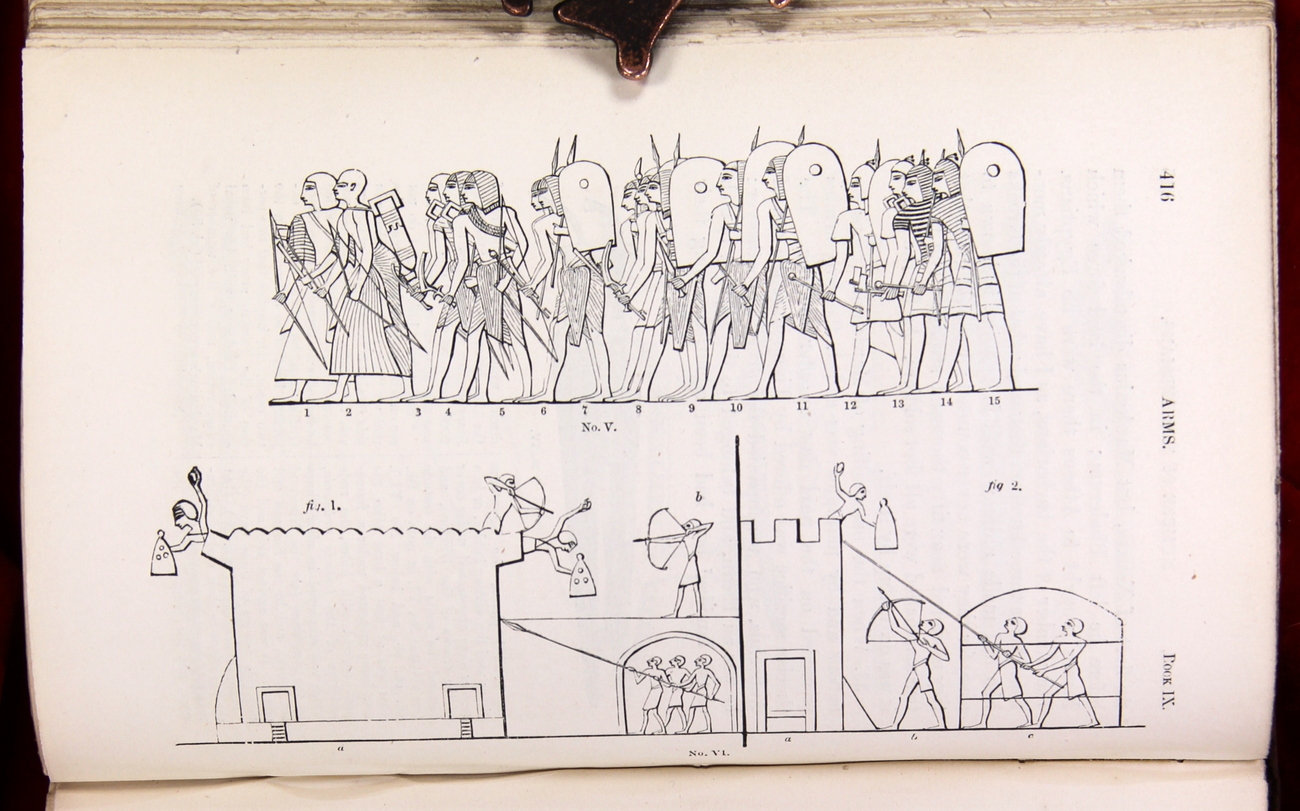 416
ARMS.
BOOK IX.
1 2 3 4 5 6 7 8 9 10 11 12 13 14 15
No. V.
fig. 1.
b
fig 2.
a
a
b
c
No. VI.